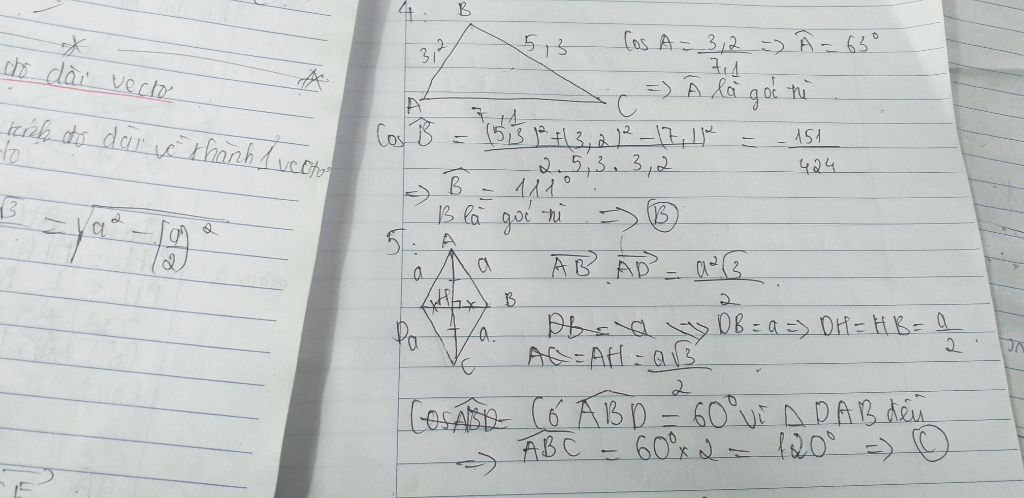 độ dài vecto
tính độ dài về thành 1 vecto
√3 = √a² − (a/2)²
4.
B
3,2
5,3
A
C
7,1
Cos A = 3,2/7,1 => Â = 63°
=> Â là goí tù
Cos B̂ = (5,3)² + (3,2)² − (7,1)² / 2.5,3.3,2 = −151/424
=> B̂ = 111°
B là goí tù => Ⓑ
5.
A
a
a
H
B
D
a
a.
C
AB→ AD→ = a²√3/2
DB = a => DB = a => DH = HB = a/2.
AC = AH = a√3/2
CosABD = Có ABD = 60° vì Δ DAB đều
=> ABC = 60° × 2 = 120° => Ⓒ